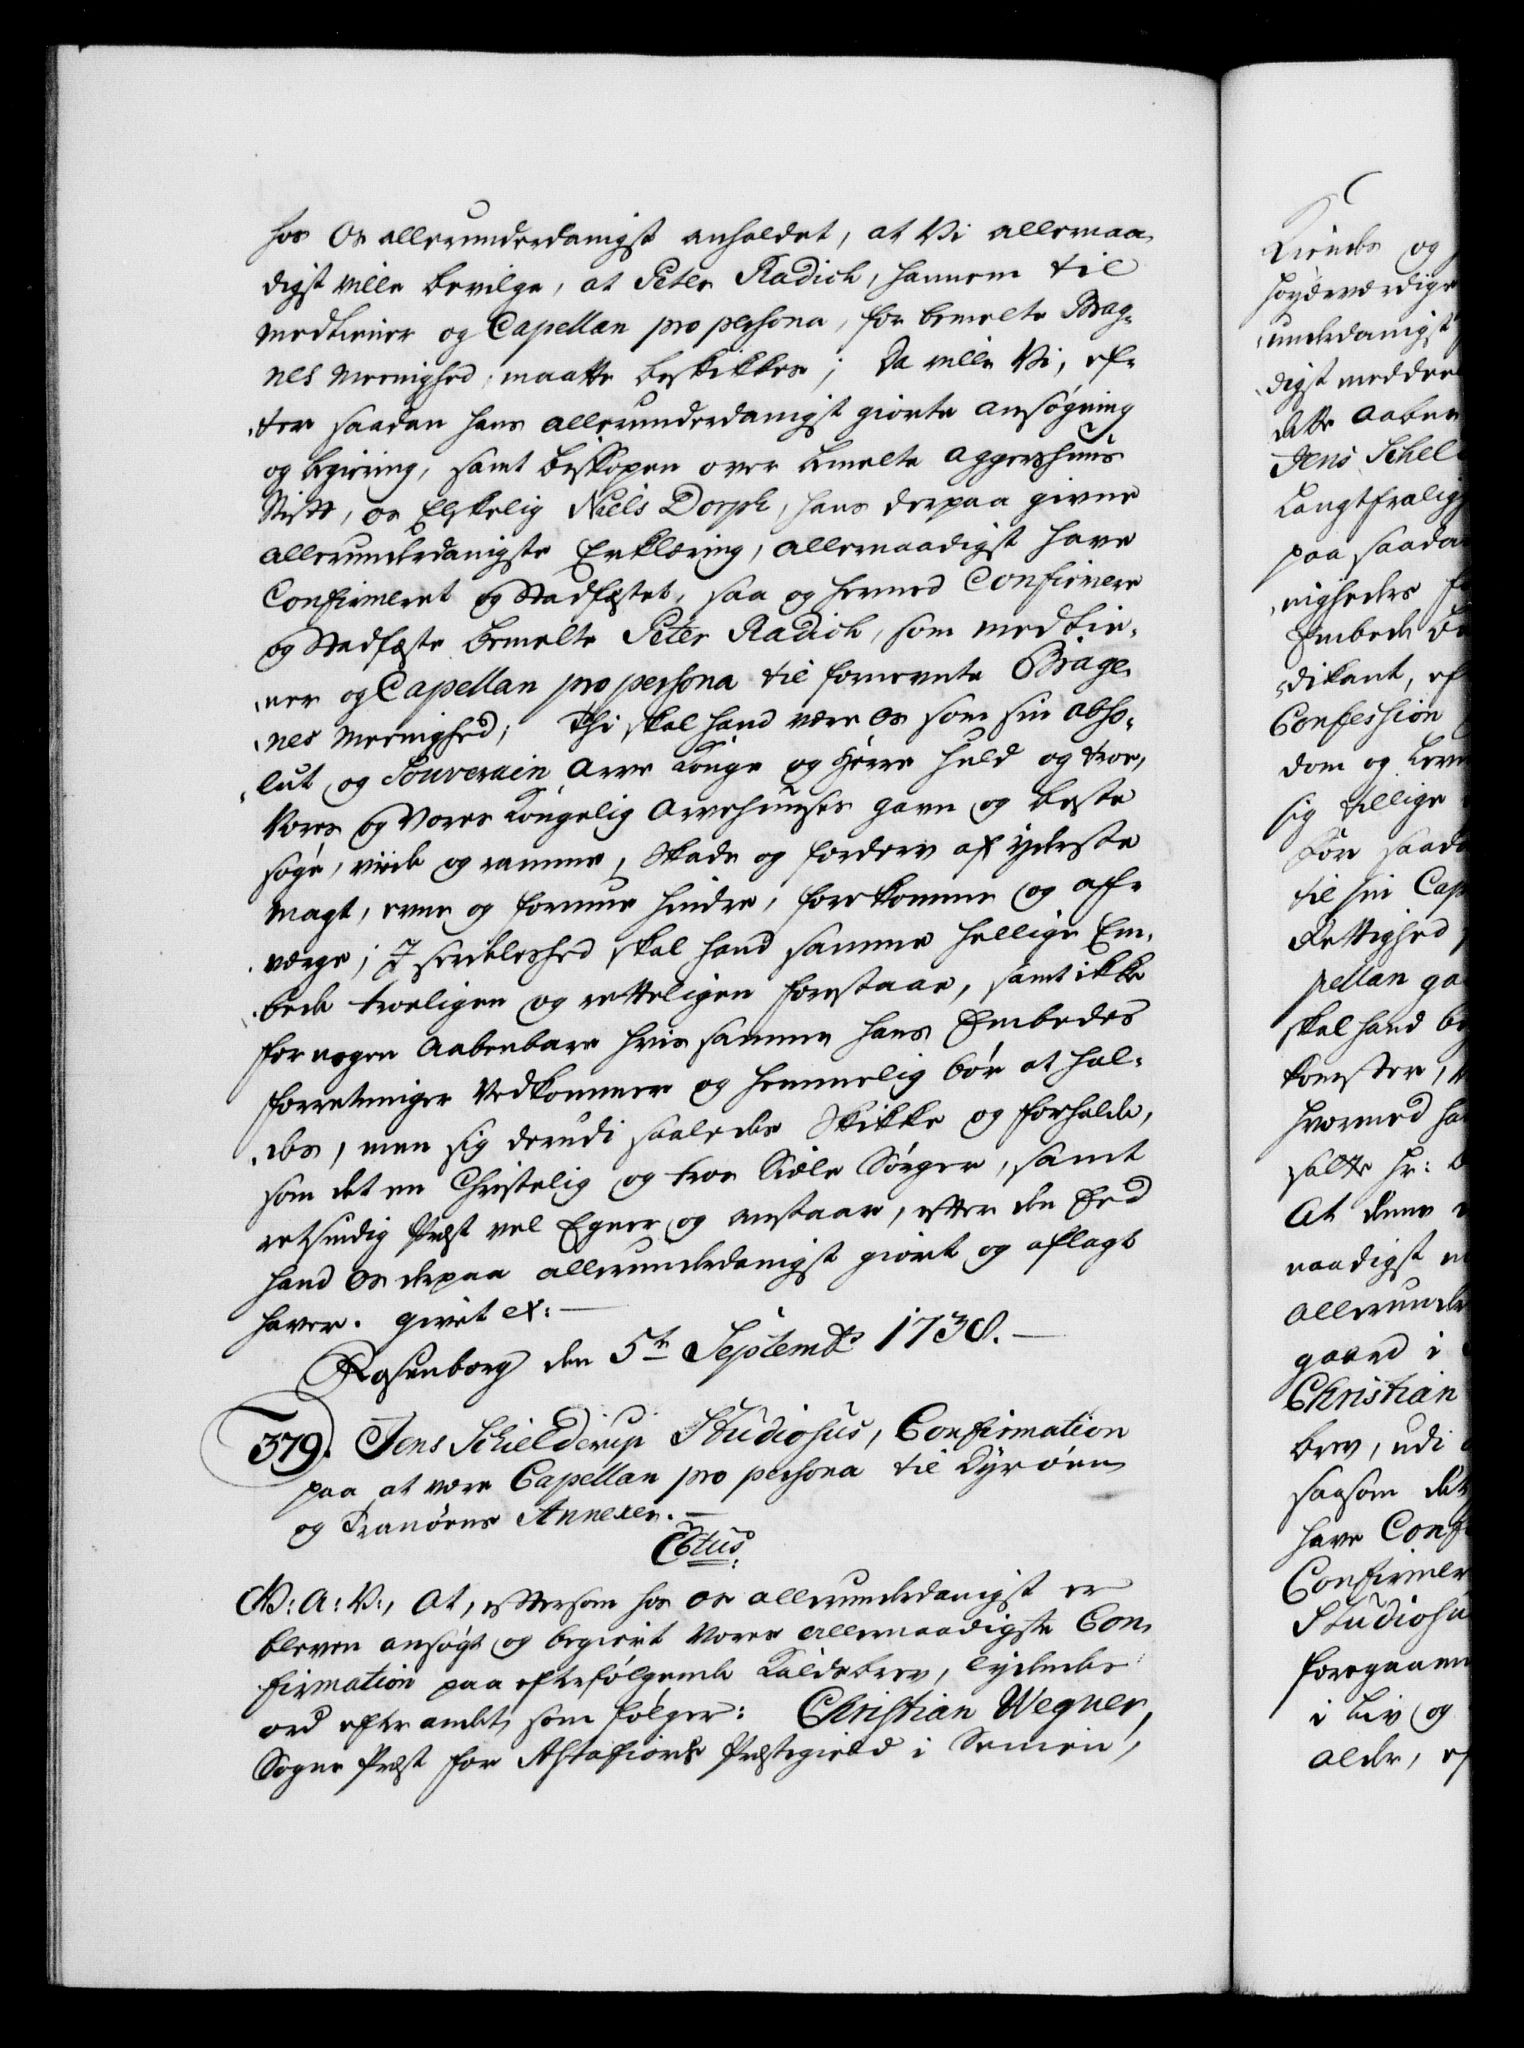 hos Os allerunderdanigst anholdet, at Vi allernaa
digst ville bevilge, at Peter Radich, hannem til
Medtiener og Capellan pro persona, for bemelte Brag-
nes Meenighed, maatte beskikkes; Da ville Vi, ef-
ter saadan hans allerunderdanigst giorte ansøgning
og begiering, samt Biskopen over bemelte Aggershuus
Stift, os Elskelig Niels Dorph, hans derpaa givne
allerunderdanigste Erklæring, allernaadigst have
Confirmeret og Stadfæstet, saa og hermed Confirmere
og Stadfæste bemelte Peter Radich, som Medtie-
ner og Capellan pro persona til fornevnte Brage-
nes Meenighed; Thi skal hand være Os som sin abso-
lut og Souverain Arve Konge og Herre huld og troe,
Vores og Vores Kongelig Arvehuuses gavn og beste
søge, viide og ramme, Skade og forderv af yderste
Magt, evne og formue hindre, forekomme og af-
værge; J serdeleshed skal hand samme hellige Em-
bede troeligen og retteligen forestaae, samt ikke
for nogen aabenbare hvis samme hans Embedes
forretninger Vedkommer og hemmelig bør at hol-
des, men sig derudi saaledes Skikke og forholde,
som det en Christelig og troe Siæle Sørger, samt
retsindig Præst vel Egner og anstaar, efter den Eed
hand Os derpaa allerunderdanigst giort og aflagt
haver. givet ex:
Rosenborg den 5te Septembr 1738.
379. Jens Schielderup Studiosus, Confirmation
paa at være Capellan pro persona til Dyrøens
og Tranøens Annexer.
Ctus.
V: A: V:, At, eftersom hos os allerunderdanigst er
bleven ansøgt og begiert Vores allernaadigste Con
firmation paa efterfølgende Kaldsbrev, lydende
ord efter andet som følger: Christian Wegner,
Sogne Præst for Astafiords Præstegield i Senien,
Kiendes og
høyværdige
underdanigst
digst meddeel
dette aabne
Jens Schel
Langtfralig
paa saadan
nigheder
Embede
dikant, ef
Confession
dom og Lev
sig tillige
saad
til sin Cap
Rettighed
pellan ga
skal hand
komster,
hvormed ha
satte hr:
At denne
naadigst
allerunde
gaard i
Christian
brev, udi
saasom det
have Conf
Confirmer
Studiosu
foregaaen
i Liv og
alder, ef